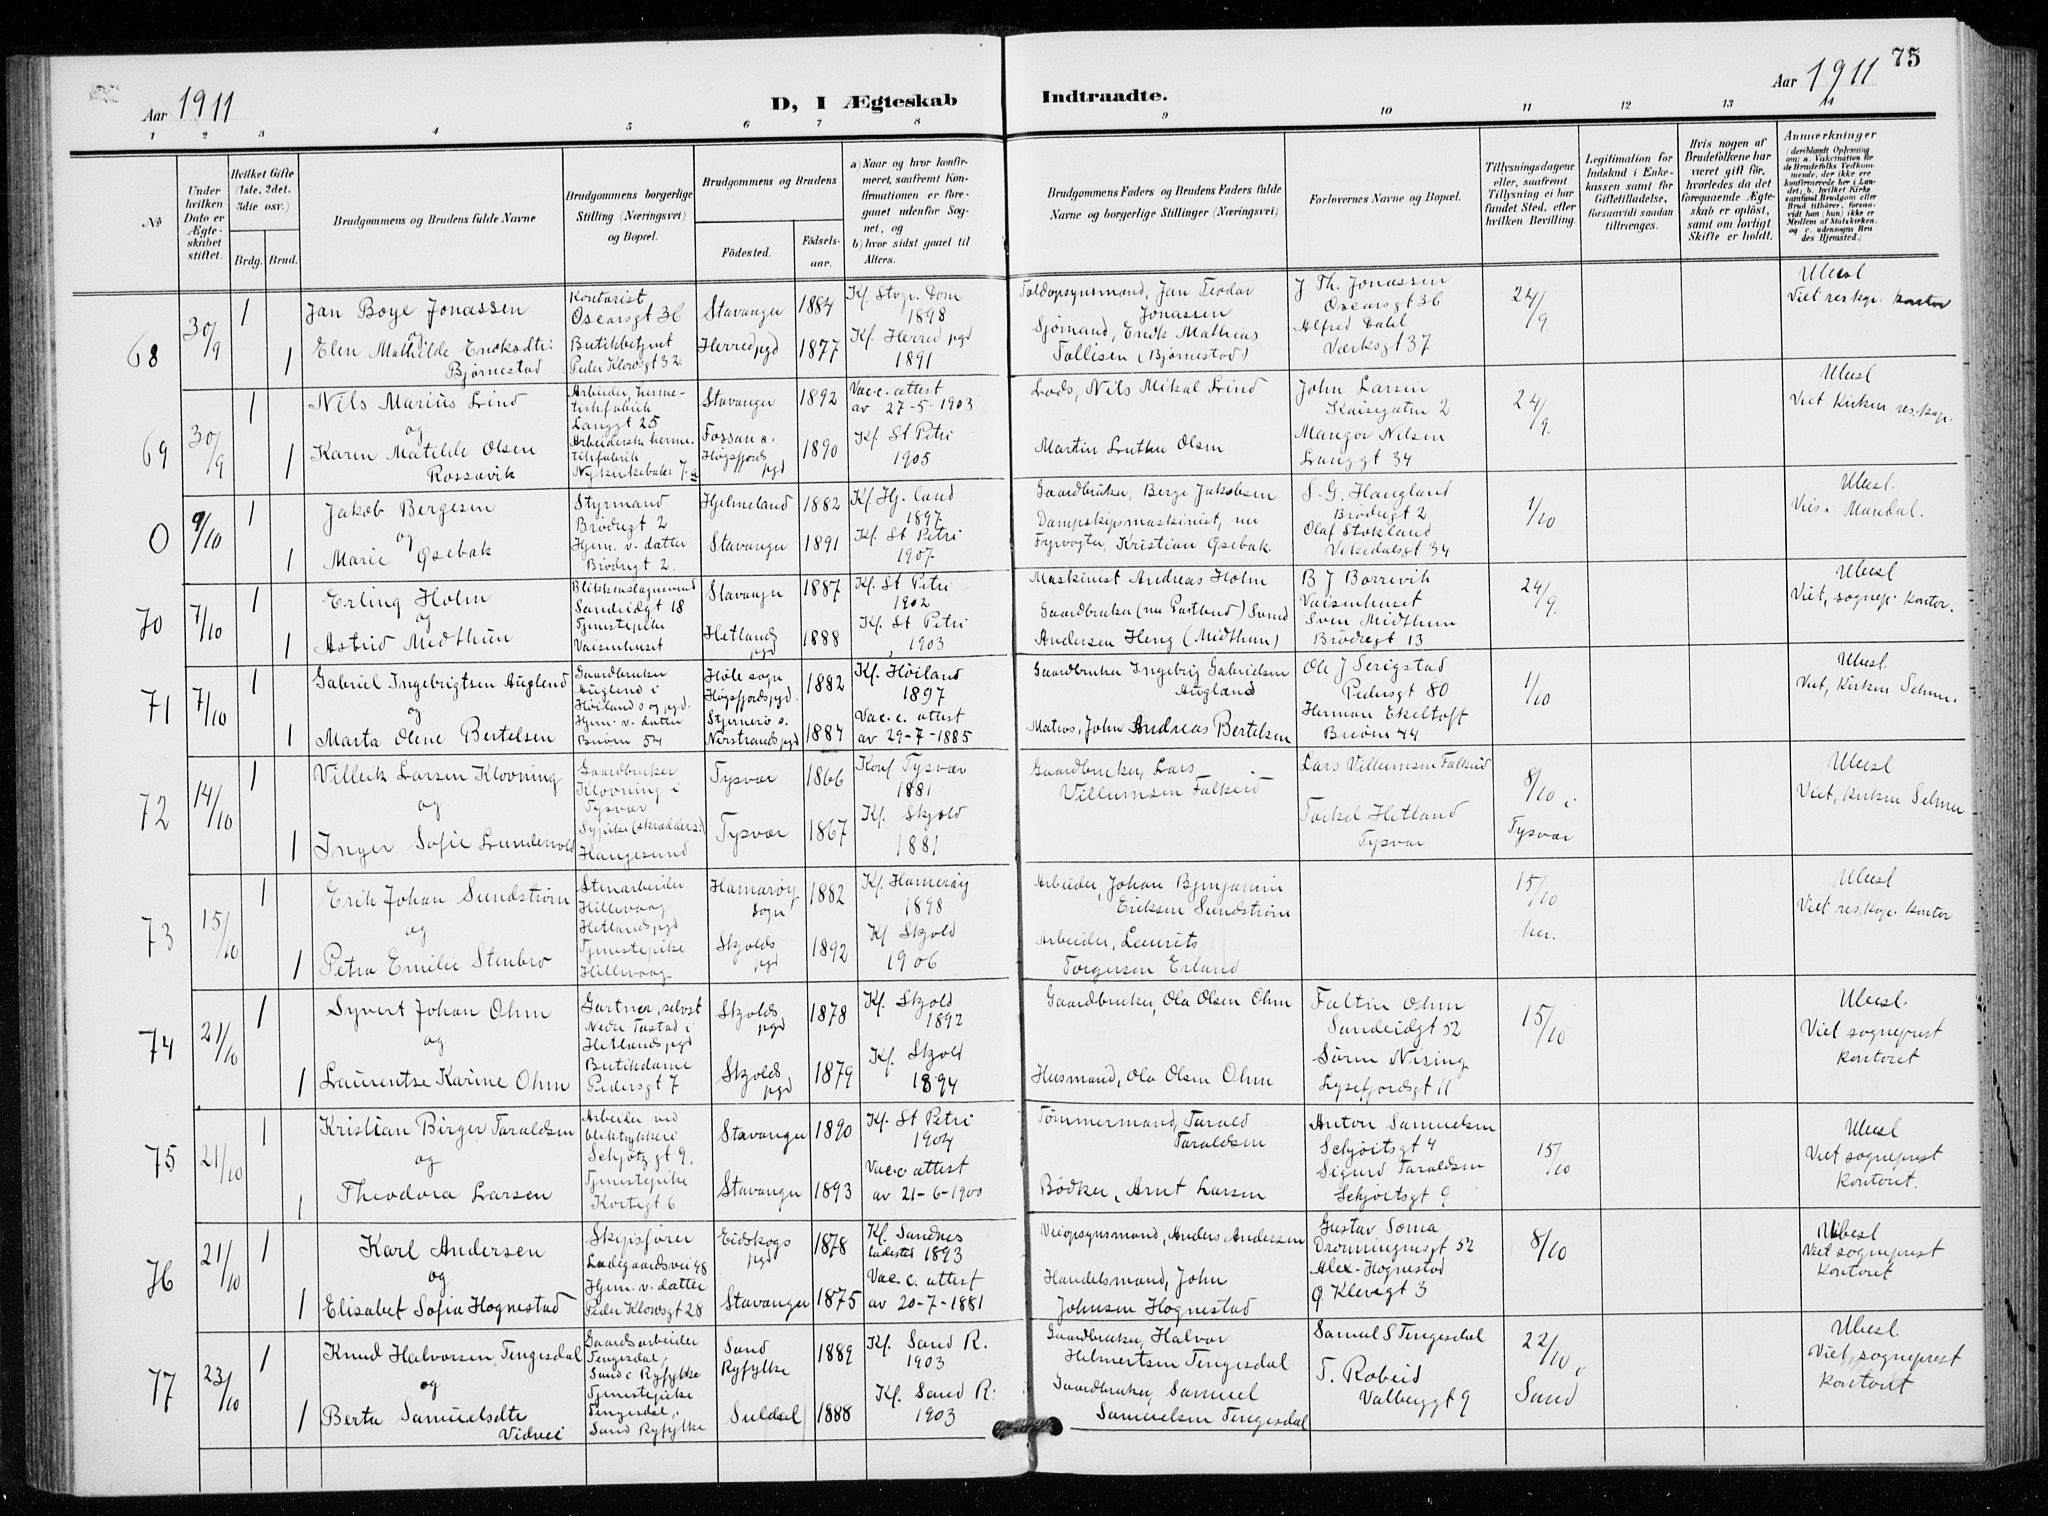 75
Aar 1911
D, I Ægteskab Indtraadte.
Aar 1911
1 2 3 4 5 6 7 8 9 10 11 12 13 14
№
Under hvilken Dato er Ægteskabet stiftet.
Hvilket Gifte (1ste, 2det, 3die osv.)
Brdg. Brud.
Brudgommens og Brudens fulde Navne
Brudgommens borgerlige Stilling (Næringsvei) og Bopæl.
Brudgommens og Brudens
Födested. Födselsaar.
a) Naar og hvor konfirmeret, saafremt Konfirmationen er foregaaet udenfor Sognet, og
b) hvor sidst gaaet til Alters.
Brudgommens Faders og Brudens Faders fulde Navne og borgerlige Stillinger (Næringsvei)
Forlovernes Navne og Bopæl.
Tillysningsdagene eller, saafremt Tillysning ei har fundet Sted, efter hvilken Bevilling
Legitimation for Indskud i Enkekassen samt for Giftetilladelse, forsaavidt saadan tiltrænges.
Hvis nogen af Brudefolkene har været gift før, hvorledes da det foregaaende Ægteskab er oplöst, samt om lovligt Skifte er holdt.
Anmærkninger
(deriblandt Oplysning om: a. Vakcination for de Brudefolks Vedkommende, der ikke ere konfirmerede her i Landet; b. hvilket Kirkesamfund Brudgom eller Brud tilhörer, forsaavidt han (hun) ikke er Medlem af Statskirken, og c. udensogns Brudes Hjemsted.)
68 30/9 1 Jan Boye Jonassen Kontorist Oscarsgt 36 Stavanger 1884 Kf. Stvgr. Dom 1898 Toldopsynsmand, Jan Teodor Jonassen J Th. Jonassen Oscarsgt 36 24/9. Ubesl Viet res.kap. kontor
og
1 Elen Mathilde Eriksdtr: Bjørnestad Butikbetjent Peder Klowsgt 32 Herred pgd 1877 Kf. Herred pgd 1891 Sjømand, Erik Mathias Tollisen (Bjørnestad) Alfred Dahl Værksgt 37
69 30/9 1 Nils Marius Lind Arbeider, hermetikfabrik Langgt 25 Stavanger 1892 Vac.c. attest av 27-5-1903 Lods, Nils Mikal Lind John Larsen Kaisegaten 2 24/9. Ubesl Viet Kirken res.kap.
og
1 Karen Matilde Olsen Rossavik Arbeiderske hermetikfabrik Nykirkebakk 7a Fossan s. Høgsfjords pgd 1890 Kf. St Petri 1905 Martin Luther Olsen Mangor Nilsen Langgt 34
0 9/10 1 Jakob Bergesen Styrmand Brødregt 2 Hjelmeland 1882 Kf. Hj.land 1897 Gaardbruker, Berge Jakobsen S. G. Haugland Brødregt 2 1/10 Ubesl. Vies i Mandal.
og
1 Marie Øsebak Hjem. v. datter Brødregt 2. Stavanger 1891 Kf. St Petri 1907 Dampskipsmaskinist, nu Fyrvogter, Kristian Øsebak. Olaf Stokland Vikedalsgt 34
70 7/10 1 Erling Holm Blikkenslagersvend Sandeidgt 18 Stavanger 1887 Kf. St Petri 1902 Maskinist Andreas Holm B J Borrevik Vaisenhuset 24/9. Ubesl Viet, sognep. kontor.
og
1 Astrid Midthun Tjenestepike Vaisenhuset Hetlands pgd 1888 Kf. St Petri 1903 Gaardbruker (nu Portbud) Svend Andersen Heng (Midthun) Sven Midthun Brødregt 13
71 7/10 1 Gabriel Ingebrigtsen Auglend Gaardbruker Auglend i Høiland s og pgd. Høle sogn Høgsfjords pgd. 1882 Kf. Høiland 1897 Gaardbruker Ingebrig Gabrielsen Augland Ole J Serigstad Pedersgt 80 1/10 Ubesl. Viet, Kirken Selmer.
og
1 Marta Olene Bertelsen Hjem. v. datter Breiøen 54 Stjernerø s. Nerstrands pgd 1884 Vac.c. attest av 29-7-1885 Matros, John Andreas Bertelsen Herman Ekeltoft Breiøen 44
72 14/10 1 Villeik Larsen Klovning Gaardbruker Klovning i Tysvær Tysvær 1866 Konf Tysvær 1881 Gaardbruker, Lars Villumsen Falkeid Lars Villumsen Falkeid 8/10 i Tysvær Ubesl Viet, kirken Selmer
og
1 Inger Sofie Lundervold Sypike (skrædders.) Haugesund Tysvær 1867 Kf. Skjold 1881 Torkel Hetland Tysvær
73 15/10 1 Erik Johan Sundstrøm Stenarbeider Hillevaag Hetlands pgd Hamarøy sogn 1882 Kf. Hamerøy 1898 Arbeider, Johan Benjamin Eriksen Sundstrøm 15/10 her. Ubesl Viet res.kap. kontor
og
1 Petra Emilie Stenbro Tjenestepike Hillevaag Skjolds pgd 1892 Kf Skjold 1906 Arbeider, Laurits Torgersen Erland
74 21/10 1 Syvert Johan Ohm Gartner, selvst Nedre Tastad i Hetlands pgd Skjolds pgd 1878 Kf. Skjold 1892 Gaardbruker, Ola Olsen Ohm Faltin Ohm Sandeidgt 52 15/10 Ubesl. Viet sogneprest kontoret
og
1 Laurentse Karine Ohm Butikdame Pedersgt 7 Skjolds pgd 1879 Kf. Skjold 1894 Husmand, Ola Olsen Ohm Søren Nising Lysefjordsgt 11
75 21/10 1 Kristian Birger Taraldsen Arbeider ved bliktrykkeri Schjøtz gt 9. Stavanger 1890 Kf. St Petri 1904 Tømmermand, Tarald Taraldsen Anton Samuelsen Schjøitsgt 4 15/10 Ubesl Viet sogneprest kontoret.
og
1 Theodora Larsen Tjenestepike Kortegt 6 Stavanger 1893 Vac.c attest av 21-6-1900 Bødker, Arnt Larsen Sigurd Taraldsen Schjøitsgt 9
76 21/10 1 Karl Andersen Skipsfører Ladegaardsvei 48 Eidskogs pgd 1878 Kf. Sandnes ladested 1893 Veiopsynsmand, Anders Andersen Gustav Soma Dronningensgt 52 8/10 Ubesl Viet sogneprest kontoret
og
1 Elisabet Sofia Hognestad Hjem. v. datter Peder Klowsgt 28 Stavanger 1875 Vac.c. attest av 20-7-1881 Handelsmand, John Johnsen Hognestad Alex. Hognestad Ø Klevegt 3
77 23/10 1 Knud Halvorsen Tengesdal Gaardsarbeider Tengesdal, Sand i Ryfylke Sand Ryfylke 1889 Kf. Sand R. 1903 Gaardbruker, Halvor Helmertsen Tengesdal Samuel S Tengesdal 22/10 i Sand Ubesl. Viet, sogneprest kontoret
og
1 Berta Samuelsdtr Vidvei Tjenestepike Tengesdal, Sand Ryfylke Suldal 1888 Kf. Sand R. 1903 Gaardbruker, Samuel Samuelsen Tengesdal T. Robeid Valberggt 9